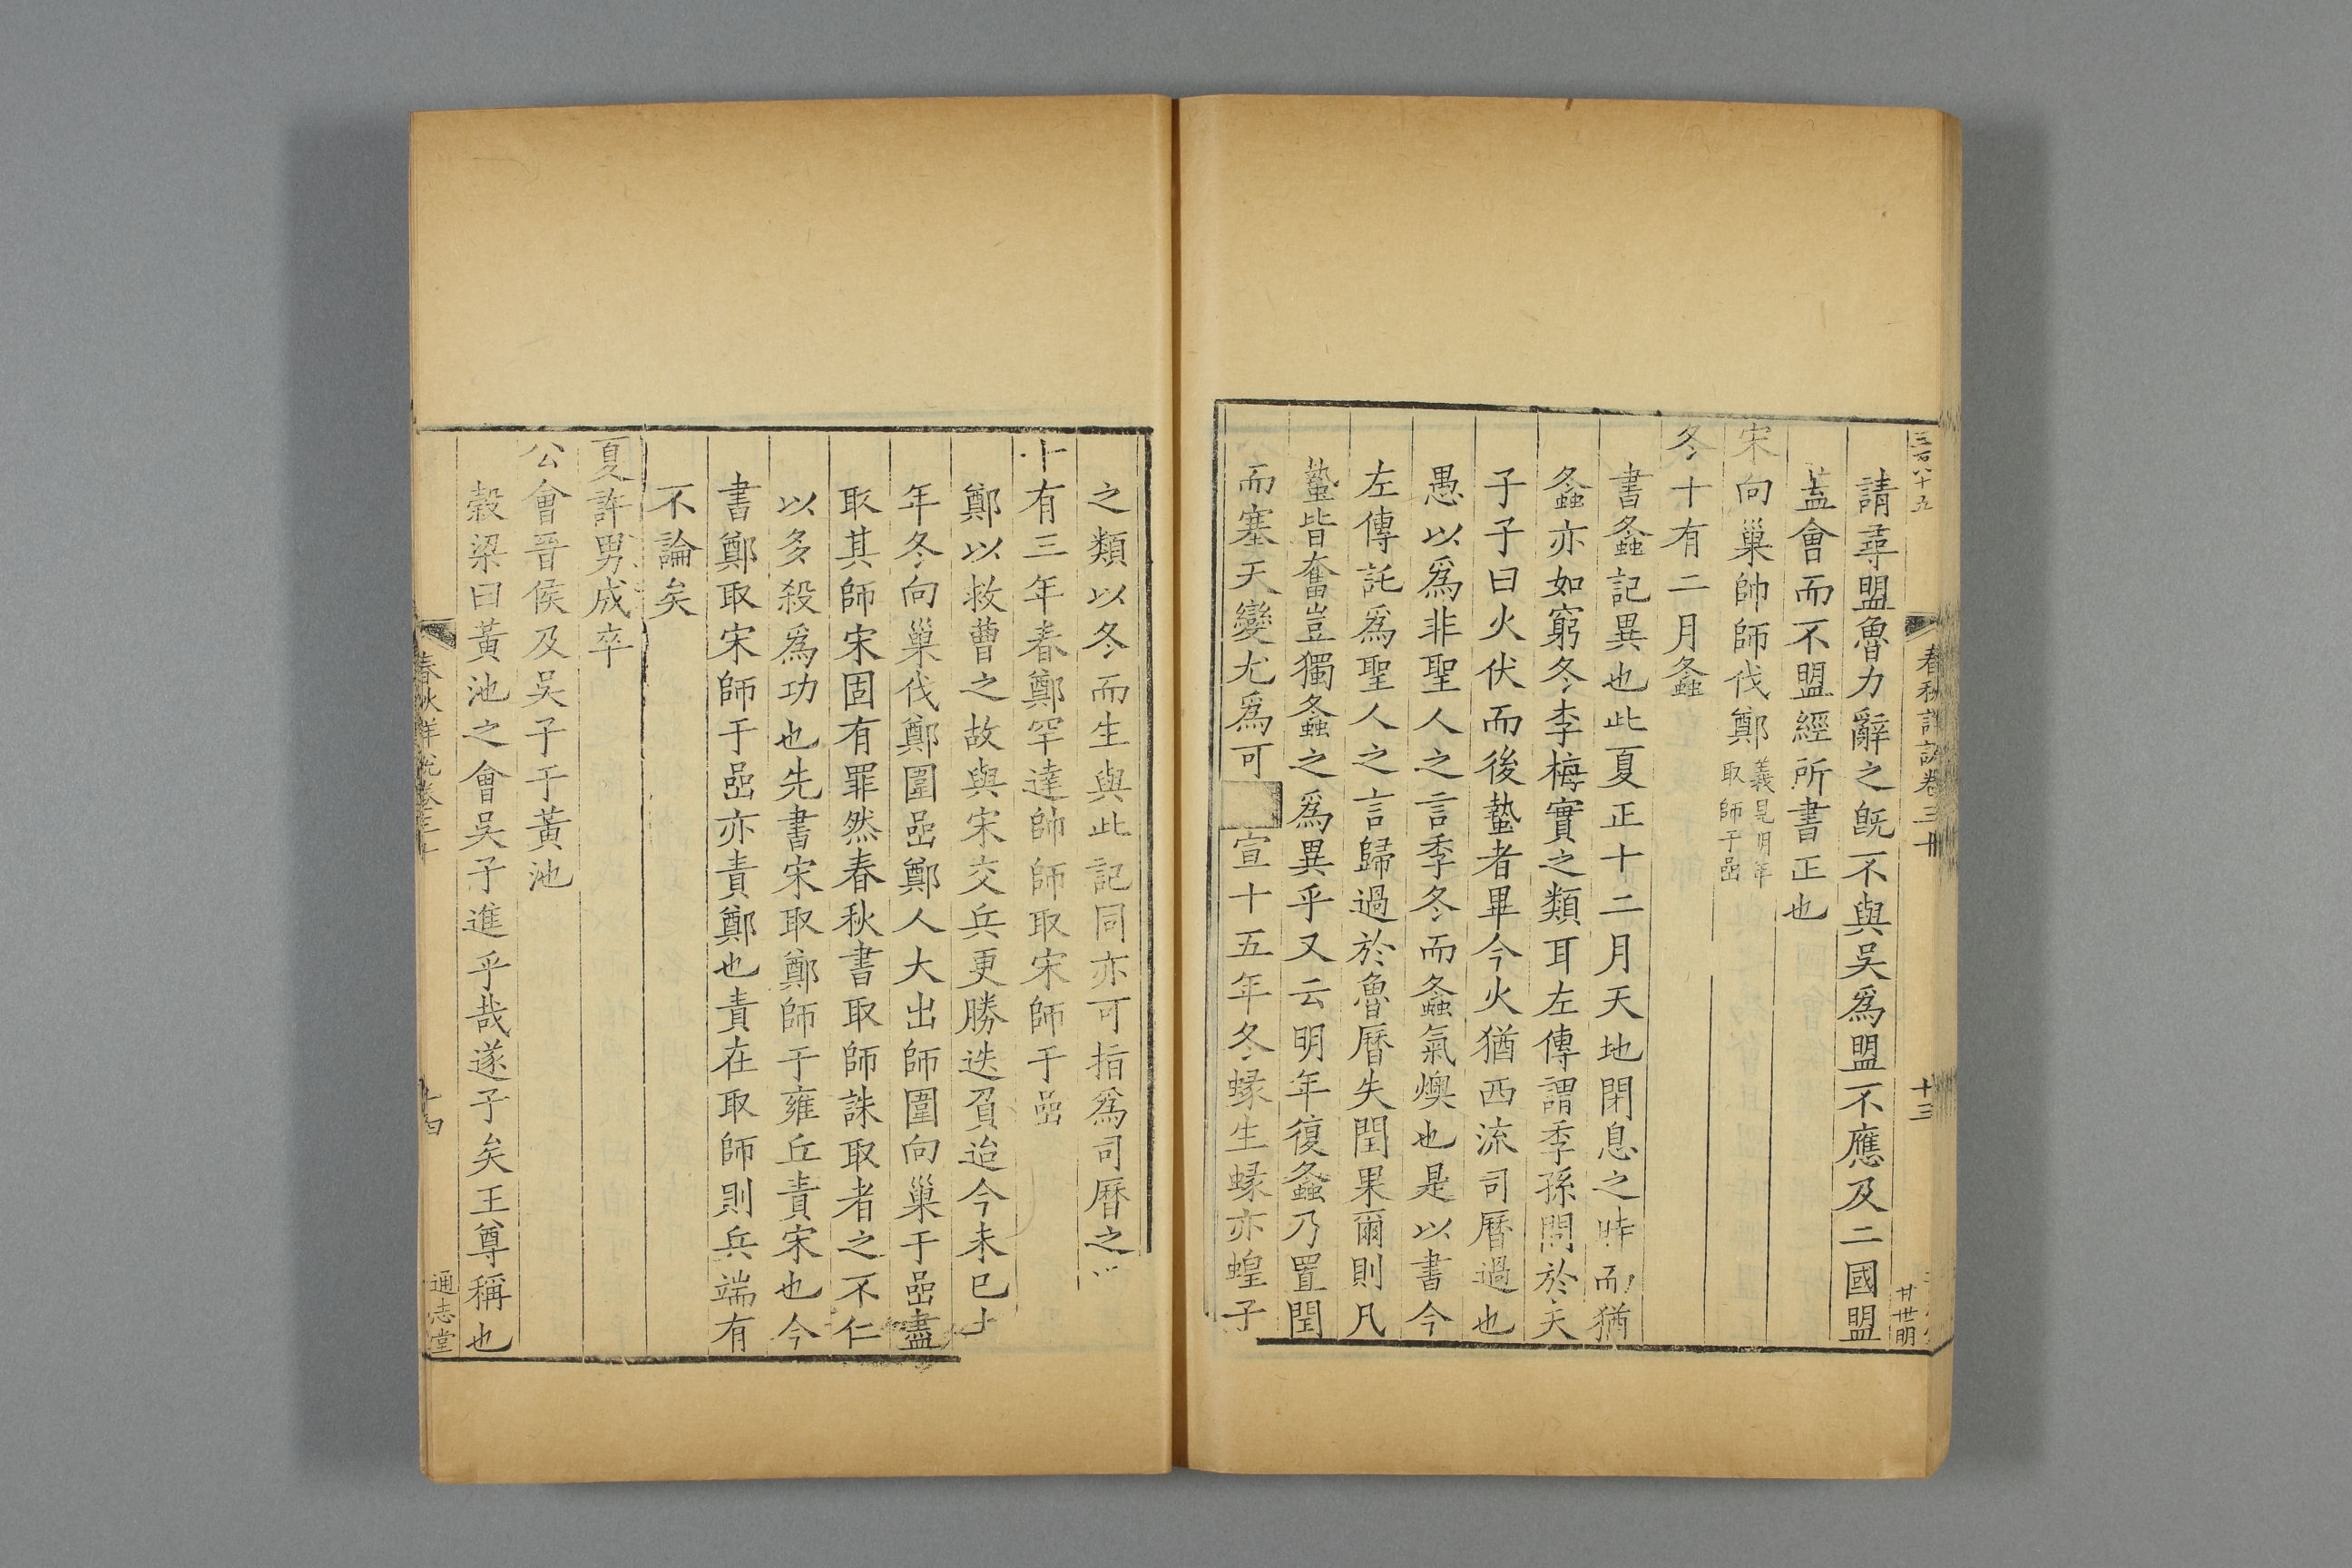 三百八十五
春秋詳說卷三十
十三
甘世明
請尋盟魯力辭之旣不與吳爲盟不應及二國盟
蓋會而不盟經所書正也
宋向巢帥師伐鄭義見明年
取師于嵒
冬十有二月螽
書螽記異也此夏正十二月天地閉息之時而猶
螽亦如窮冬李梅實之類耳左傳謂季孫問於夫
子子曰火伏而後蟄者畢今火猶西流司曆過也
愚以爲非聖人之言季冬而螽氣燠也是以書今
左傳託爲聖人之言歸過於魯曆失閏果爾則凡
蟄皆奮豈獨螽之爲異乎又云明年復螽乃置閏
而塞天變尤爲可宣十五年冬蝝生蝝亦蝗子
之類以冬而生與此記同亦可指爲司曆之
十有三年春鄭罕達帥師取宋師于嵒
鄭以救曹之故與宋交兵更勝迭負迨今未已
年冬向巢伐鄭圍嵒鄭人大出師圍向巢于嵒盡
取其師宋固有罪然春秋書取師誅取者之不仁
以多殺爲功也先書宋取鄭師于雍丘責宋也今
書鄭取宋師于嵒亦責鄭也責在取師則兵端有
不論矣
夏許男成卒
公會晉侯及吳子于黃池
穀梁曰黃池之會吳子進乎哉遂子矣王尊稱也
春秋詳說卷三十
十四
通志堂